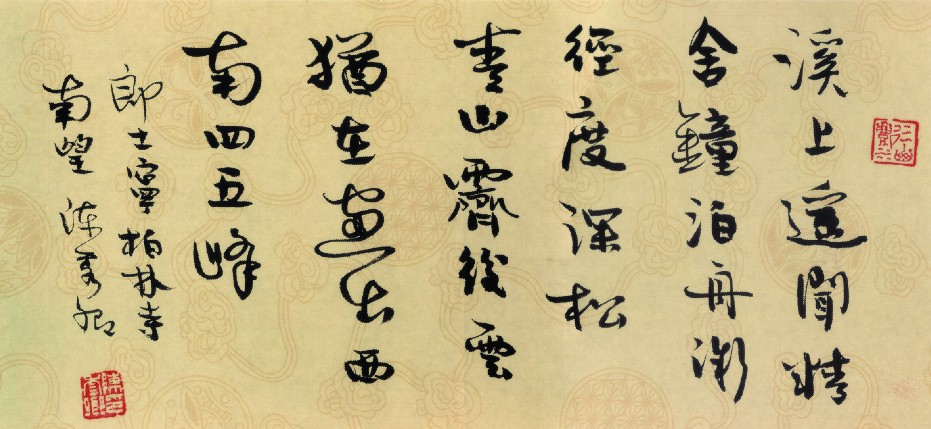 溪上遙聞精
舍鐘泊舟微
徑度深松
青山霽後雲
猶在畫出西
南四五峰
郎士寧柏林寺
南望 陳秀卿